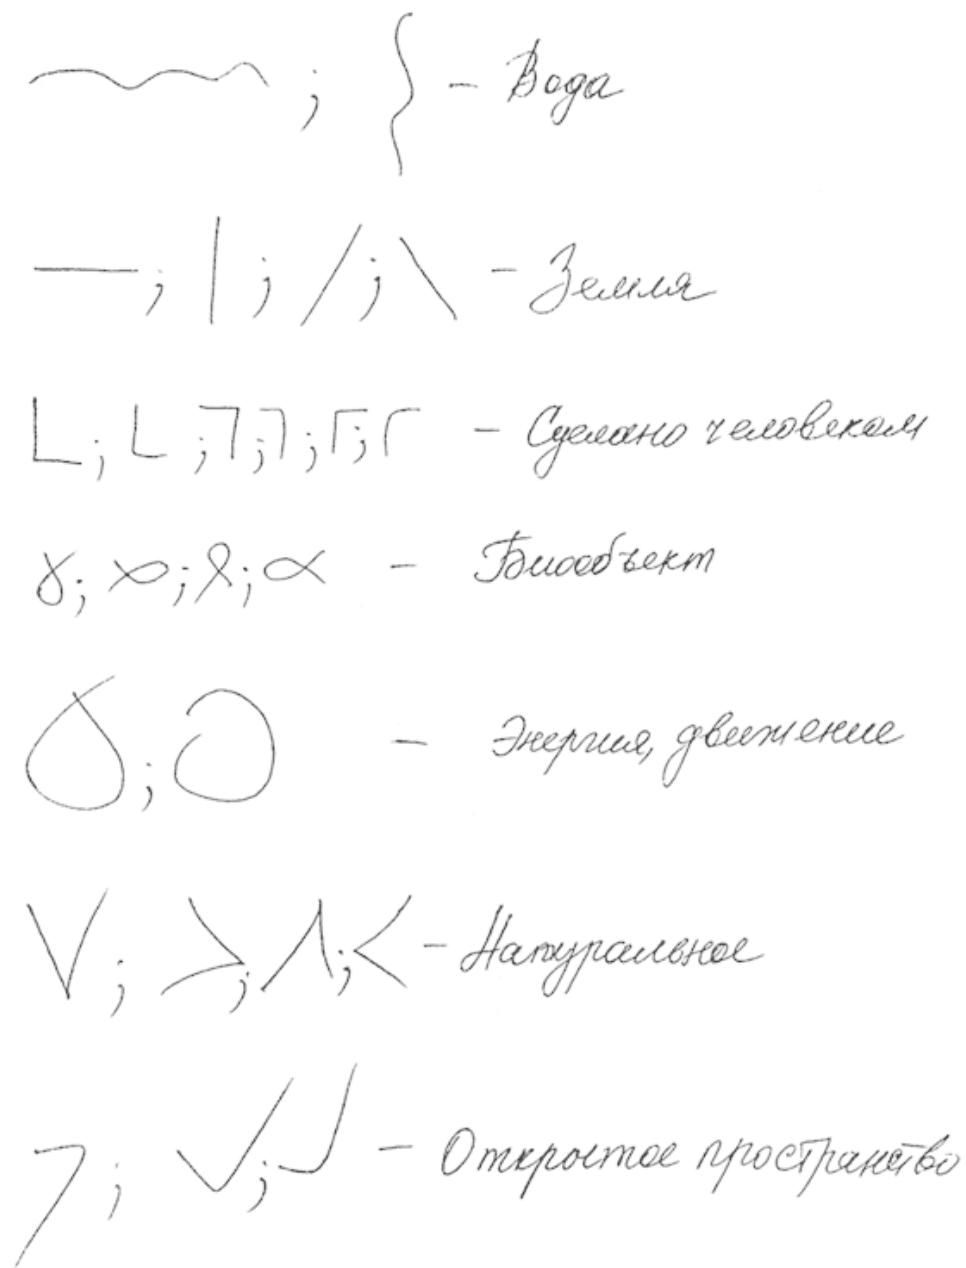 ; - Вода
; ; ; - Земля
; ; ; ; ; - Сделано человеком
; ; ; - Биообъект
; - Энергия, движение
; ; ; - Натуральное
; ; - Открытое пространство